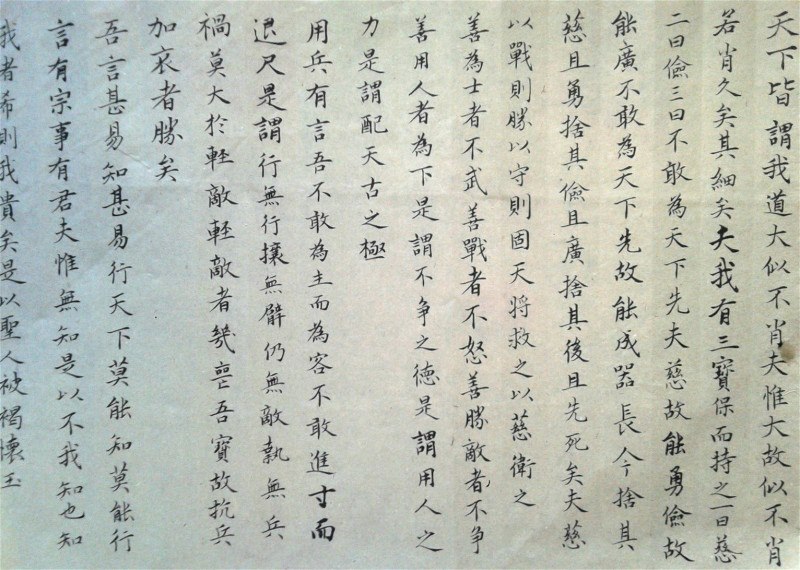 天下皆謂我道大似不肖夫惟大故似不肖
若肖久矣其細矣夫我有三寶保而持之一曰慈
二曰儉三曰不敢為天下先夫慈故能勇儉故
能廣不敢為天下先故能成器長今捨其
慈且勇捨其儉且廣捨其後且先死矣夫慈
以戰則勝以守則固天將救之以慈衛之
善為士者不武善戰者不怒善勝敵者不争
善用人者為下是謂不争之德是謂用人之
力是謂配天古之極
用兵有言吾不敢為主而為客不敢進寸而
退尺是謂行無行攘無臂仍無敵執無兵
禍莫大於輕敵輕敵者幾喪吾寶故抗兵
加哀者勝矣
吾言甚易知甚易行天下莫能知莫能行
言有宗事有君夫惟無知是以不我知也知
我者希則我貴矣是以聖人被褐懷玉